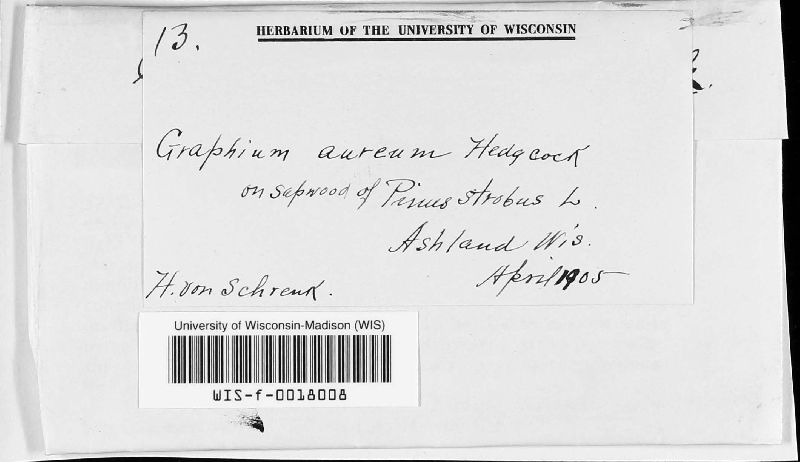 13.
HERBARIUM OF THE UNIVERSITY OF WISCONSIN
Graphium aureum Hedgcock
on sapwood of Pinus strobus L.
Ashland Wis.
April 1905
H. von Schrenk.
University of Wisconsin-Madison (WIS)
WIS-f-0018008